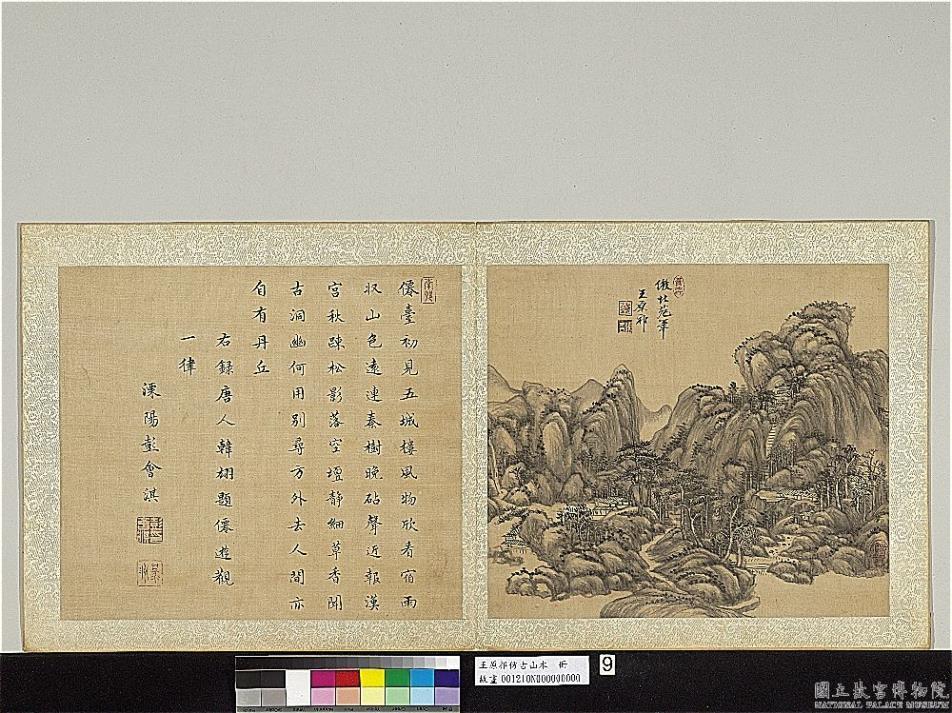 倣北苑筆
王原祁
僊臺初見五城樓風物欣看宿雨
収山色遠連秦樹晚砧聲近報漢
宮秋踈松影落空壇靜細草香聞
古洞幽何用別尋方外去人間亦
自有丹丘
右錄唐人韓翃題僊遊觀
一律
溧陽彭會淇
王原祁仿古山水 冊
故畫 001210N000000000
9
國立故宮博物院
NATIONAL PALACE MUSEUM